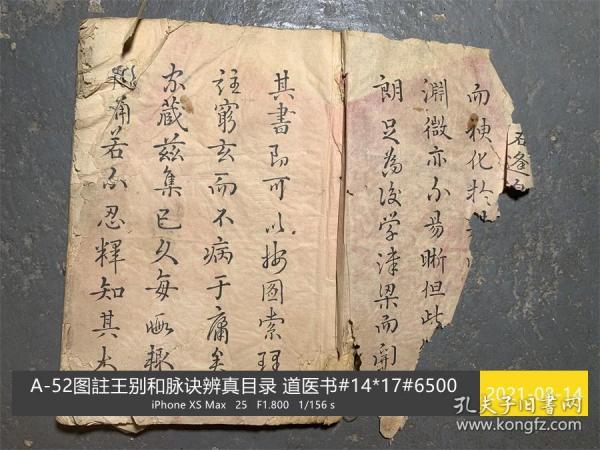 而
化
渊微亦不易晰但此
朗足为後学津梁而開
其書即可以按图索理
註窮玄而不病于庸矣
家藏兹集已久每
若不忍釋知其大
石逢
A-52图註王别和脉诀辨真目录 道医书#14*17#6500
iPhone XS Max 25 F1.800 1/156 s
2021-08-14
孔夫子旧书网
www.kongfz.com